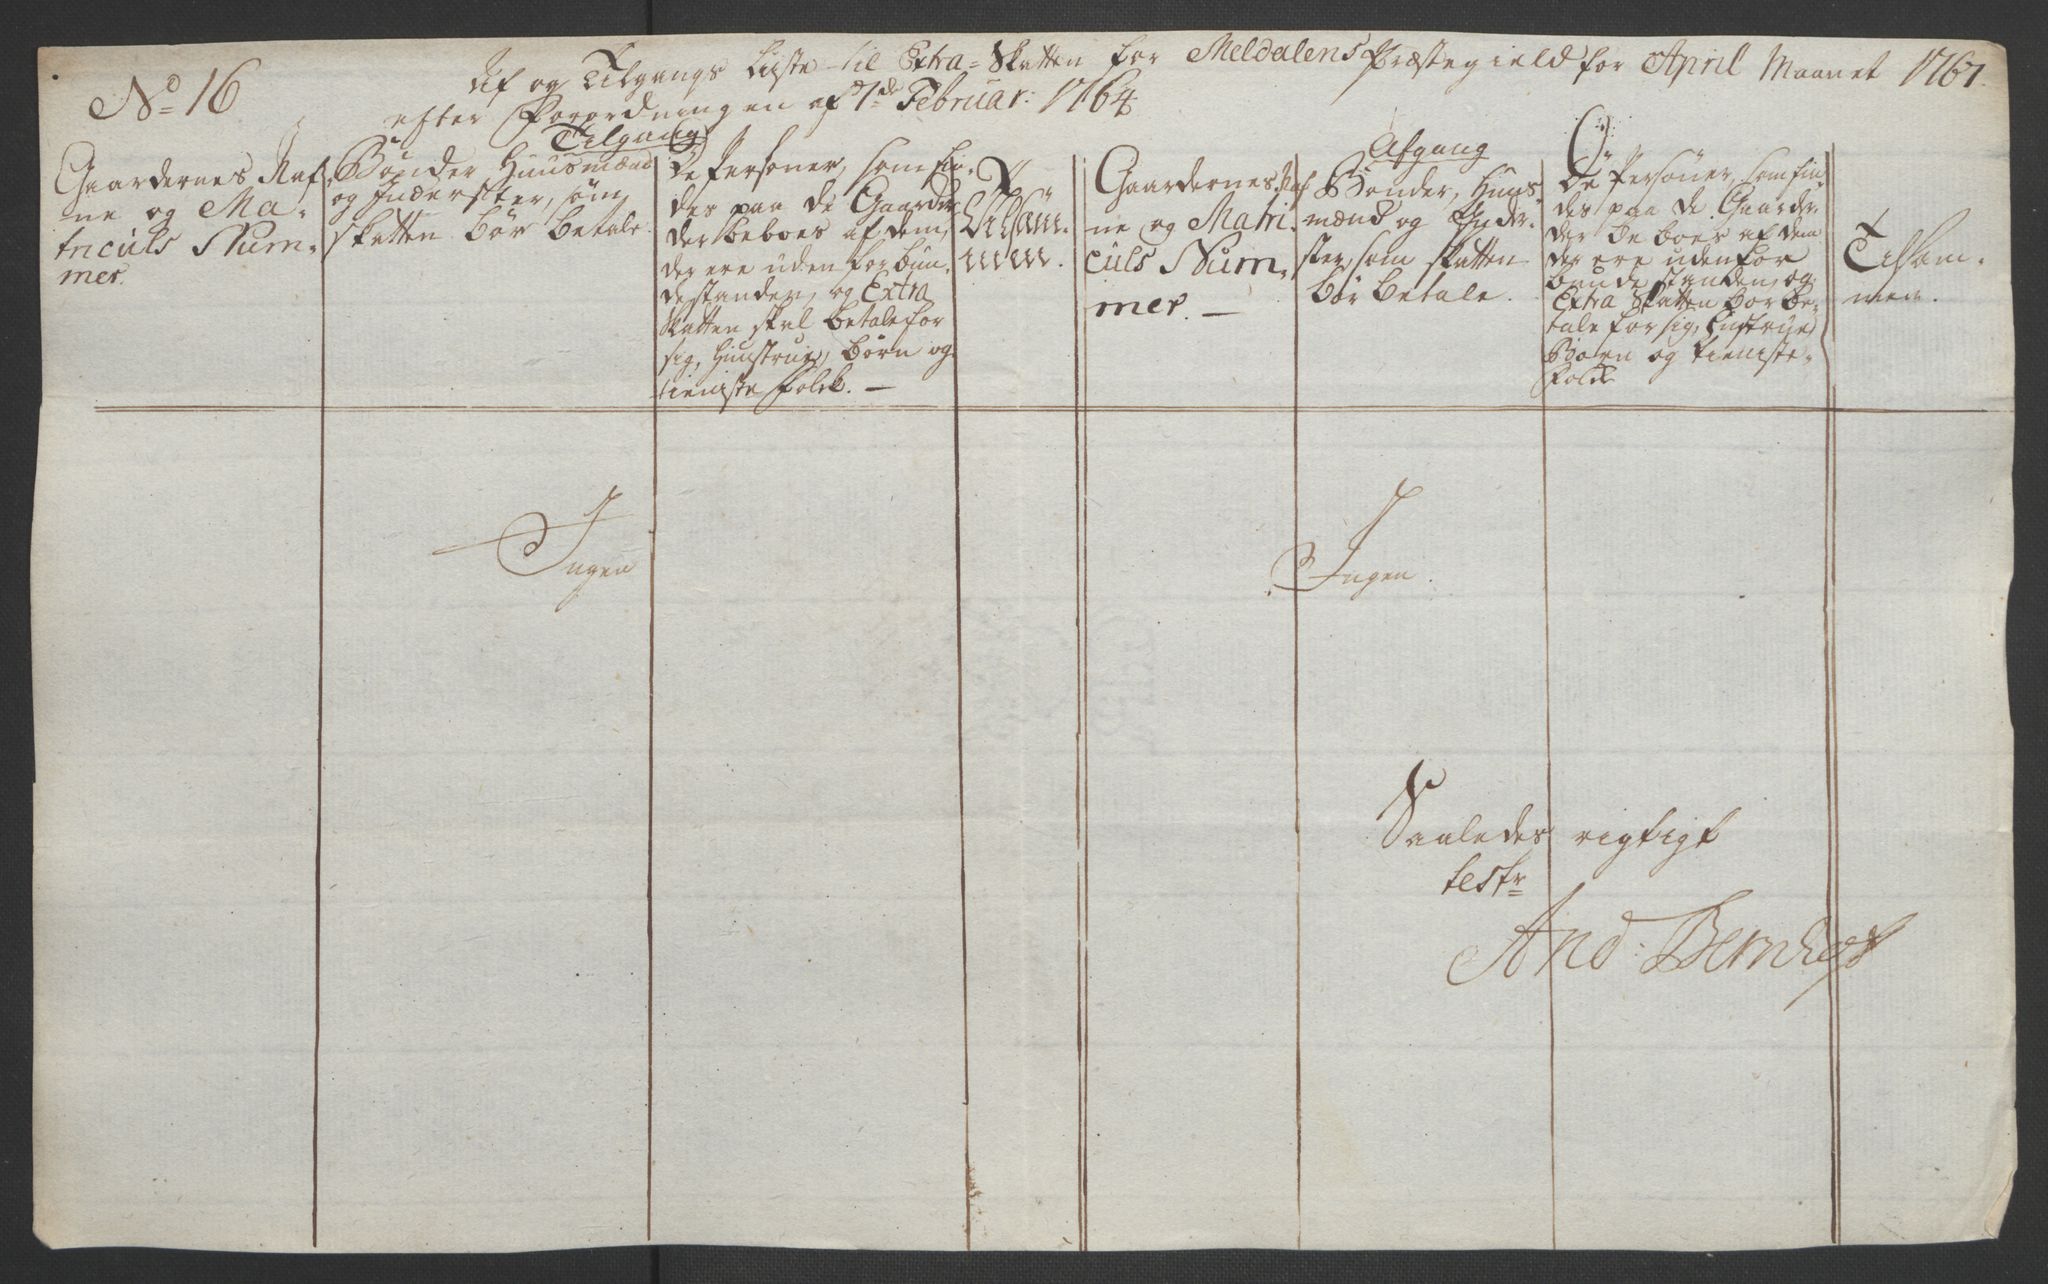 No 16
Af og Tilgangs Liste til Extra-Skatten for Meldalens Præstegield for April Maanet 1767.
efter Forordningen af 7de Februar: 1764
Tilgang
Gaardernes Naf-
ne og Ma-
triculs Num-
mer.
Bönder Huusmænd
og Inderster, som
skatten bör betale.
De Personer, som fin-
des paa de Gaarde
der beboes af dem,
der ere uden for bon-
destanden, og Extra
skatten skal betale for
sig, Huustrue, börn og
tieniste folck. —
Tilsam-
men.
Afgang
Gaardernes Naf
ne og Matri-
culs Num-
mer. —
Bonder, Huus-
mænd og Inder-
ster, som skatten
bör betale.
De Personer, som fin
des paa de Gaarde
der beboes af dem
der ere uden for
bonde standen, og
Extra Skatten bör be-
tale for sig, Hustrue
Börn og tieniste-
folck
Tilsam-
men.
Ingen
Ingen.
Saaledes rigtigt
testr
And: Bernhoft